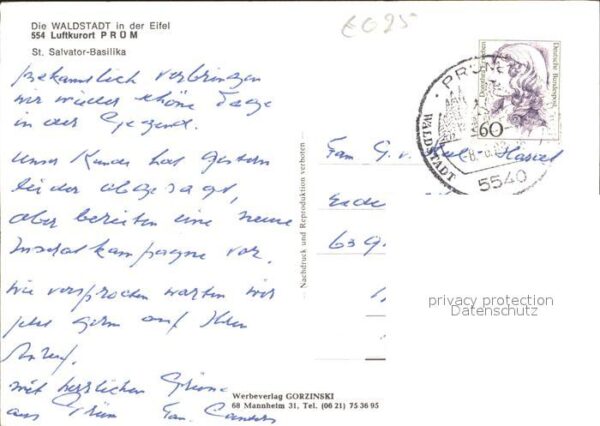 Die WALDSTADT in der Eifel
554 Luftkurort PRÜM
St. Salvator-Basilika
bekanntlich verbringen
wir wieder schöne Tage
in der Gegend.
Unser Kunde hat gestern
leider abgesagt,
aber bereiten eine neue
Inseratkampagne vor.
wie versprochen warten wir
jetzt gern auf Ihren
Anruf.
mit herzlichen Grüssen
aus Prüm Fam.
Werbeverlag GORZINSKI
68 Mannheim 31, Tel. (06 21) 75 36 95
Nachdruck und Reproduktion verboten
6025
PRÜM
WALDSTADT
5540
60
Deutsche Bundespost
Fam G. v.
639
privacy protection
Datenschutz